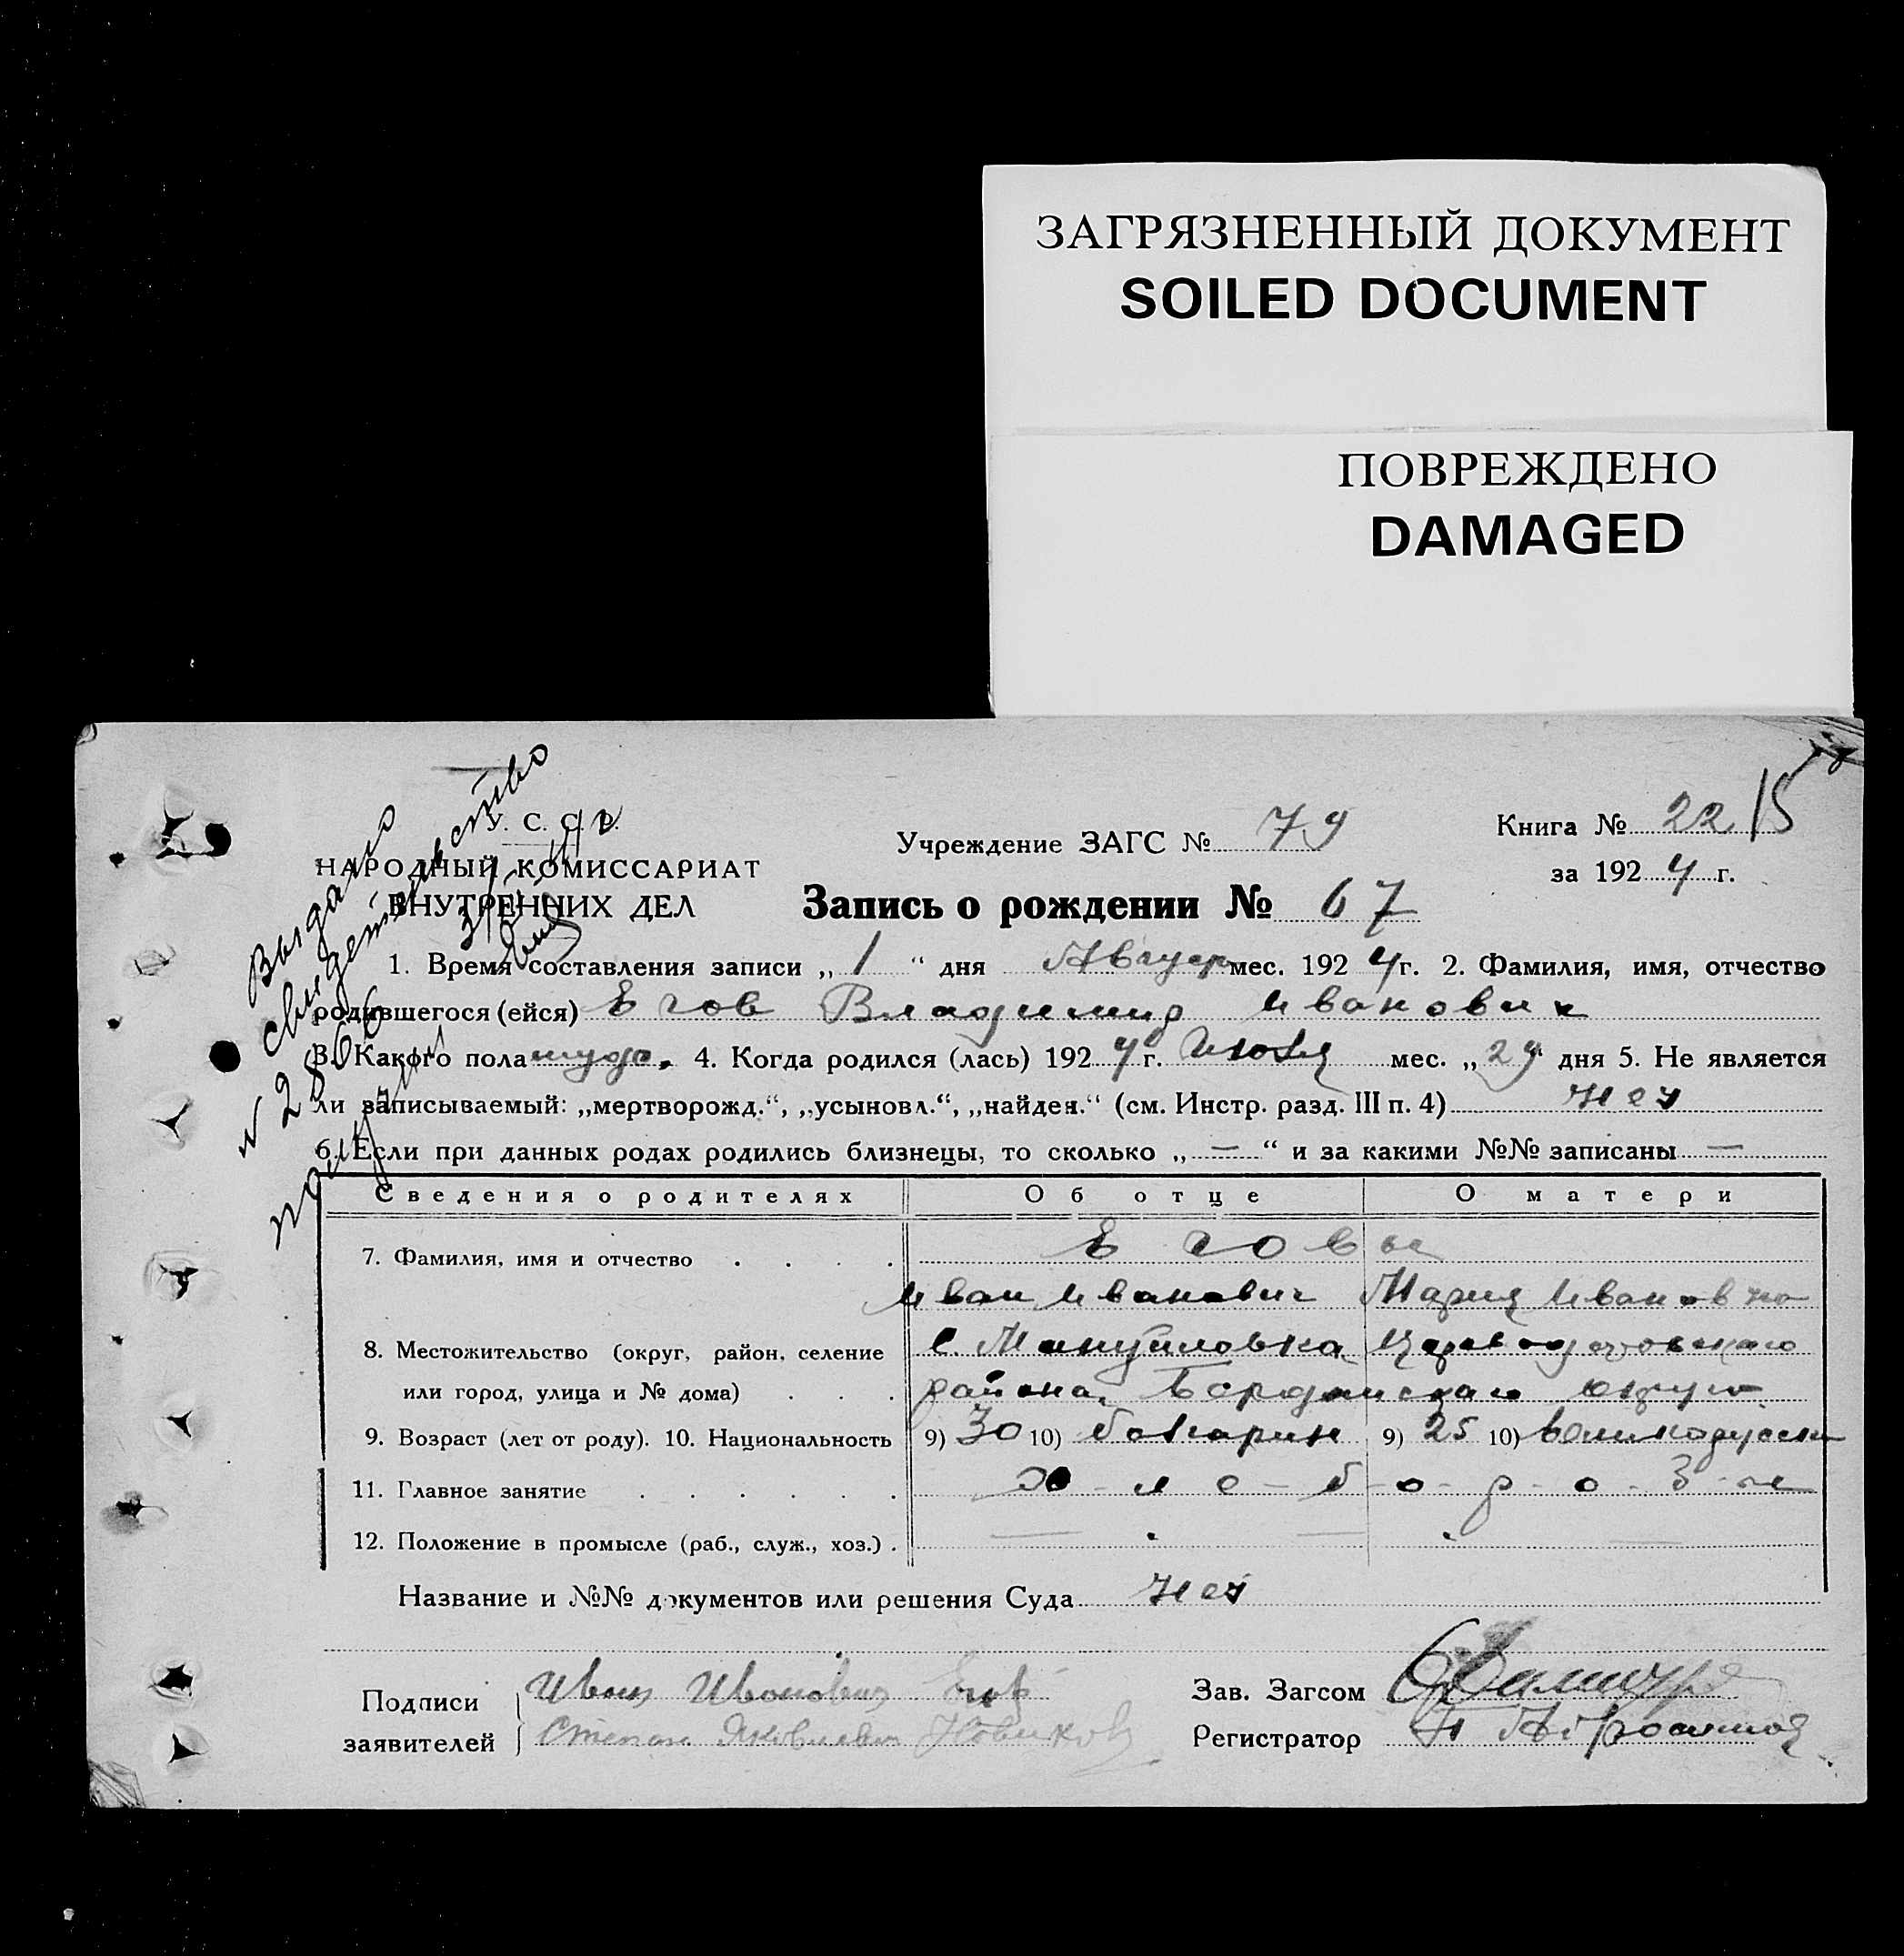 ЗАГРЯЗНЕННЫЙ ДОКУМЕНТ
SOILED DOCUMENT
ПОВРЕЖДЕНО
DAMAGED
Выдано
свидетельство
N 28666
У. С. С. Р.
НАРОДНЫЙ КОМИССАРИАТ
ВНУТРЕННИХ ДЕЛ
Учреждение ЗАГС № 79
Книга № 22
15
за 1924 г.
Запись о рождении № 67
1. Время составления записи „ 1 “ дня Август мес. 1924 г. 2. Фамилия, имя, отчество
родившегося (ейся) Егов Владимир Иванович
3. Какого пола 4. Когда родился (лась) 1924 г. Июля мес. „ 29 “ дня 5. Не является
ли записываемый: „мертворожд.“, „усыновл.“, „найден.“ (см. Инстр. разд. III п. 4) Нет
6. Если при данных родах родились близнецы, то сколько „ — “ и за какими №№ записаны —
Сведения о родителях Об отце О матери
7. Фамилия, имя и отчество Еговы
Иван Иванович Мария Ивановна
8. Местожительство (округ, район, селение с. Мануйловка
или город, улица и № дома) района, Бердянского округа
9. Возраст (лет от роду). 10. Национальность 9) 30 10) болгарин 9) 25 10)
11. Главное занятие Х-л-е-б-о-р-о-б-ы
12. Положение в промысле (раб., служ., хоз.)
Название и №№ документов или решения Суда Нет
Подписи Иван Иванович Егов
заявителей Степан Яковлевич Новиков
Зав. Загсом
Регистратор